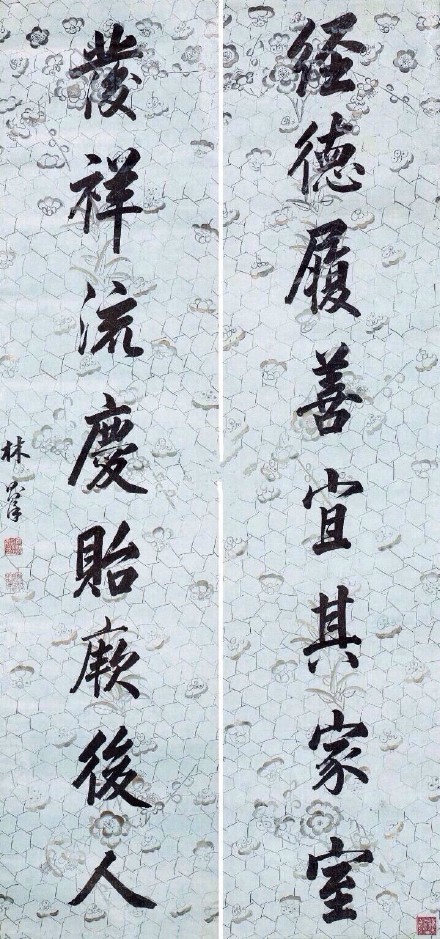 经德履善宜其家室
發祥流慶貽厥後人
林則徐